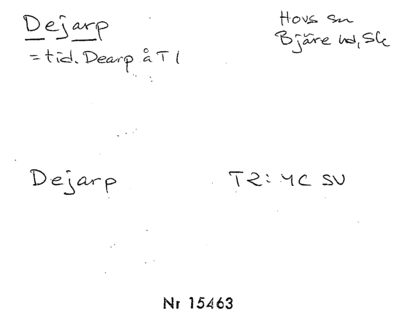 Dejarp
Hovs sn
Bjäre hd, Sk
= tid. Dearp å T1
Dejarp
T2: 4C SV
Nr 15463